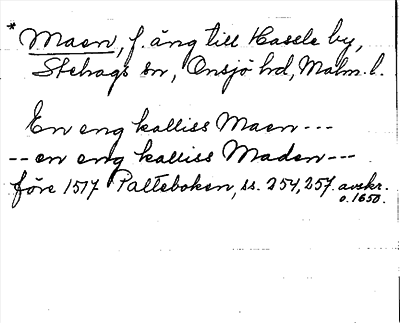 * Maen, f. äng till Hassle by,
Stehags sn, Onsjö hd, Malm. l.
En eng kalliss Maen ---
-- en eng kalliss Maden ---
före 1517 Palteboken, ss. 254, 257. avskr.
o. 1650.